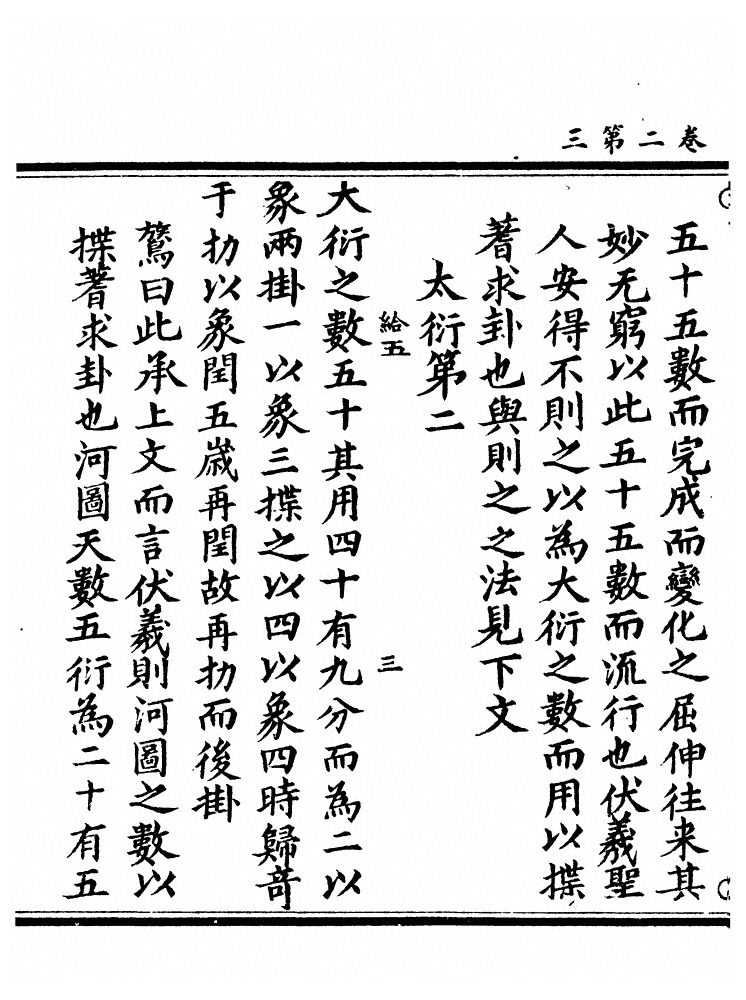 卷二第三
五十五數而完成而變化之屈伸往来其
妙无窮以此五十五數而流行也伏羲聖
人安得不則之以為大衍之數而用以揲
蓍求卦也與則之之法見下文
太衍第二
給五
三
大衍之數五十其用四十有九分而為二以
象兩掛一以象三揲之以四以象四時歸竒
于扐以象閏五歲再閏故再扐而後掛
鶩曰此承上文而言伏羲則河圖之數以
揲蓍求卦也河圖天數五衍為二十有五